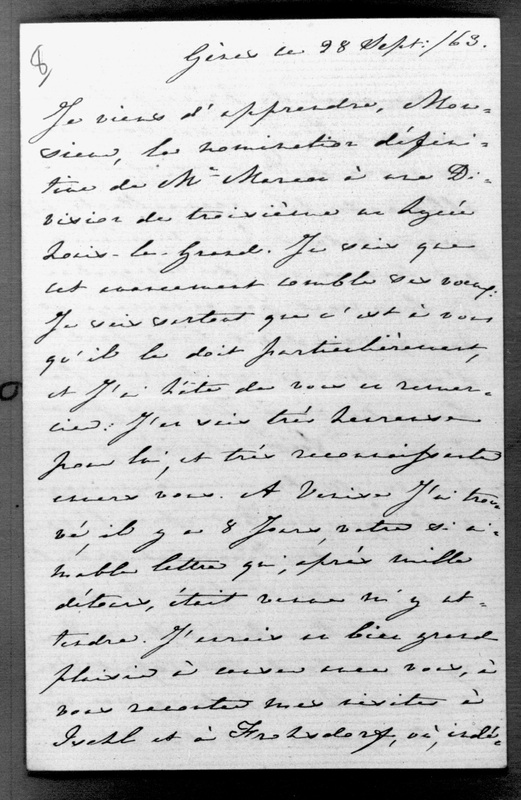 8
Gênes ce 28 Sept: /63.
Je viens d'apprendre, Mon-
sieur, la nomination défini-
tive de Mr à une Di-
vision de troisième au lycée
Louis-le-Grand. Je sais que
cet avancement comble ses vœux:
Je sais surtout que c'est à vous
qu'il le doit particulièrement,
et J'ai hâte de vous en remer-
cier: J'en suis très heureuse
pour lui, et très reconnaissante
envers vous. A Venise J'ai trou-
vé, il y a 8 Jours, votre si ai-
mable lettre qui, après mille
détours, était venue m'y at-
tendre. J'aurais un bien grand
plaisir à causer avec vous, à
vous raconter mes visites à
Ischl et à Frohsdorf, où, indé-